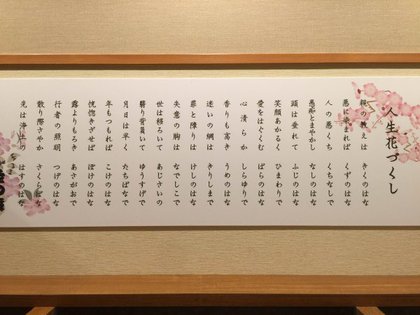 人生花づくし
親の教えは きくのはな
悪に染まれば くずのはな
人の悪くち くちなしで
愚痴とまやかし なしのはな
頭は垂れて ふじのはな
笑顔あかるく ひまわりで
愛をはぐくむ ばらのはな
心清らか しらゆりで
香りも高き うめのはな
迷いの綱は きりしまで
罪と障りは けしのはな
失意の胸は なでしこで
世は移ろいて あじさいの
驕り背負いて ゆうすげで
月日は早く たちばなで
年もつもれば こけのはな
恍惚きざせば ぼけのはな
露よりもろき あさがおで
行者の照明 つげのはな
散り際さやか さくらばな
先は浄土の はすのはな